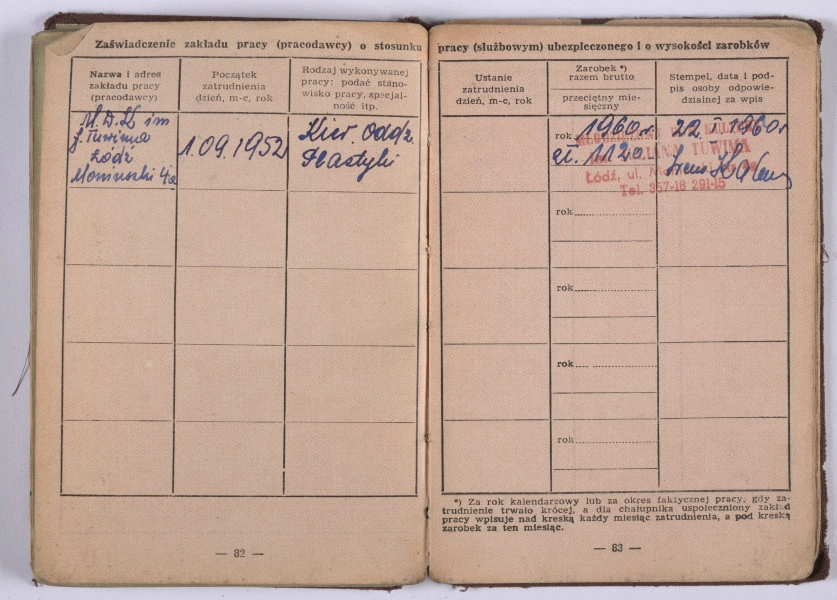 Zaświadczenie zakładu pracy (pracodawcy) o stosunku pracy (służbowym) ubezpieczonego i o wysokości zarobków
Nazwa i adres
zakładu pracy
(pracodawcy)
Początek
zatrudnienia
dzień, m-c, rok
Rodzaj wykonywanej
pracy: podać stano-
wisko pracy, specjal-
ność itp.
Ustanie
zatrudnienia
dzień, m-c, rok
Zarobek *)
razem brutto
przeciętny mie-
sięczny
Stempel, data i pod-
pis osoby odpowie-
dzialnej za wpis
M.D.K im
J. Tuwima
Łódź
Moniuszki 4a
1.09.1952
Kier. Oddz.
Plastyki
rok 1960 r.
zł. 1120
22 I 1960 r
MŁODZIEŻOWY DOM KULTURY
im. JULIANA TUWIMA
Łódź, ul.
Tel. 357-18 291-15
rok
rok
rok
rok
*) Za rok kalendarzowy lub za okres faktycznej pracy, gdy za-
trudnienie trwało krócej, a dla chałupnika uspołeczniony zakład
pracy wpisuje nad kreską każdy miesiąc zatrudnienia, a pod kreską
zarobek za ten miesiąc.
— 82 —
— 83 —